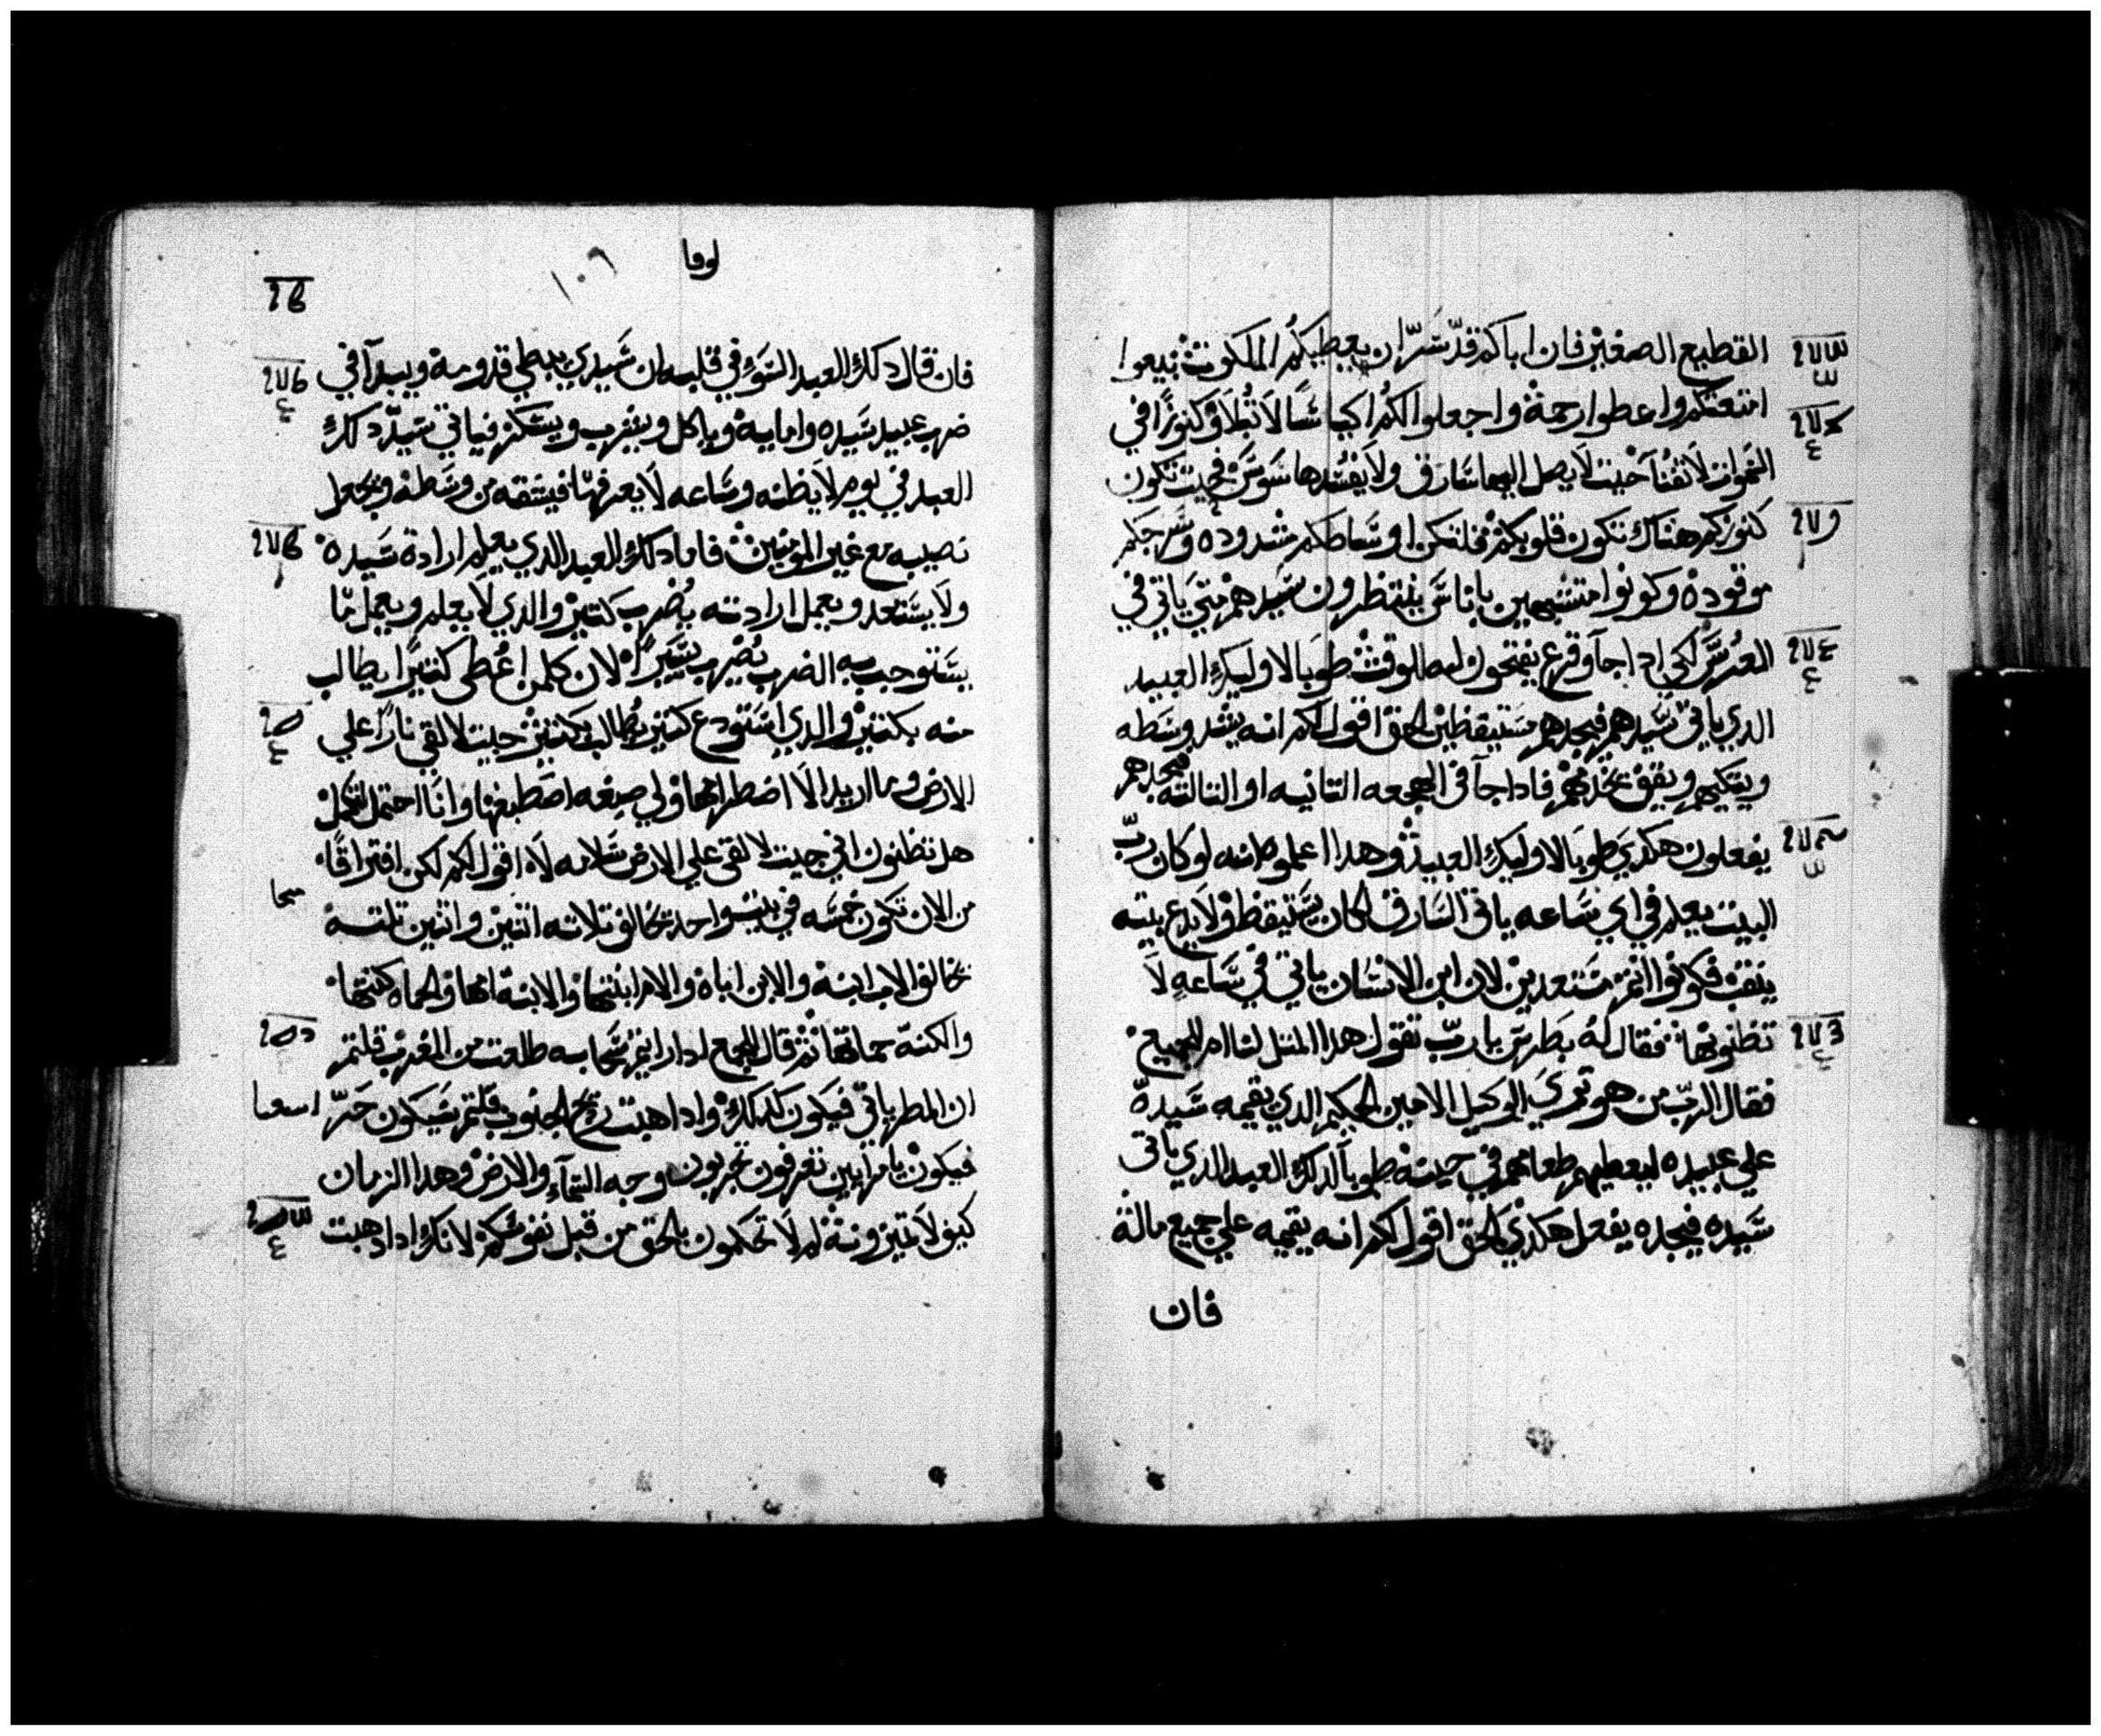 القطيع الصغير فان اباكم قد سر ان يعطيكم الملكوت بيعوا
امتعتكم واعطوا رحمة واجعلوا لكم اكياسا لا تبلا وكنوزا في
السموات لا تفنا حيت لا يصل اليها سارق ولا يفسدها سوس فحيت تكون
كنوزكم هناك تكون قلوبكم فلتكن اوساطكم مشدوده وسرجكم
موقوده وكونوا متشبهين باناس ينتظرون سيدهم متي ياتي في
العرس لكي ادا جآ وقرع يفتحون له للوقت طوبا لاوليك العبيد
الدي ياتي سيدهم فيجدهم مستيقظين الحق اقول لكم انه يشد وسطه
ويتكيهم ويقف يخدمهم فادا جآ في الهجعه التانيه او التالته فيجدهم
يفعلون هكدي طوبا لاوليك العبيد وهدا اعلموا انه لو كان رب
البيت يعلم في اي ساعه ياتي السارق لكان يستيقظ ولا يدع بيته
ينقب فكونوا انتم مستعدين لان ابن الانسان ياتي في ساعه لا
تظنونها فقال له بطرس يا رب تقول هدا المتل لنا ام للجميع
فقال الرب من هو تري الوكيل الامين الحكيم الدي يقيمه سيده
علي عبيده ليعطيهم طعامهم في حينه طوبا لدلك العبد الدي ياتي
سيده فيجده يفعل هكدي الحق اقول لكم انه يقيمه علي جميع ماله
فان
لوقا
١٠٦
فان قال دلك العبد السوء في قلبه ان سيدي يبطي قدومه ويبدآ في
ضرب عبيد سيده واماييه وياكل ويشرب ويسكر فياتي سيد دلك
العبد في يوم لا يظنه وساعه لا يعرفها فيشقه من وسطه ويجعل
نصيبه مع غير المومنين فاما دلك العبد الدي يعلم ارادة سيده
ولا يستعد ويعمل ارادته يضرب كتير والدي لا يعلم ويعمل ما
يستوجب به الضرب يضرب يسيرا لان كلمن اعطي كتيرا يطالب
منه بكتير والدي استودع كتير يطالب بكتير جيت لالقي نارا علي
الارض وما اريد الا اضطرامها ولي صبغه اصطبغها وانا احتمل لتكمل
هل تظنون اني جيت لالقي علي الارض سلامه لا اقول لكم لكن افتراقا
من الان تكون خمسه في بيت واحد تخالف تلاته اتنين واتنين تلته
تخالف الاب ابنه والابن اباه والام ابنتها والابنه امها والحماه كنتها
والكنه حماتها تم قال للجمع ادا رايتم سحابه طلعت من المغرب قلتم
ان المطر ياتي فيكون كدلك وادا هبت ريح الجنوب قلتم سيكون حر
فيكون يا مرايين تعرفون تجربون وجه السمآء والارض وهدا الزمان
كيف لا تميزونه لم لا تحكمون بالحق من قبل نفوسكم لانك ادا دهبت